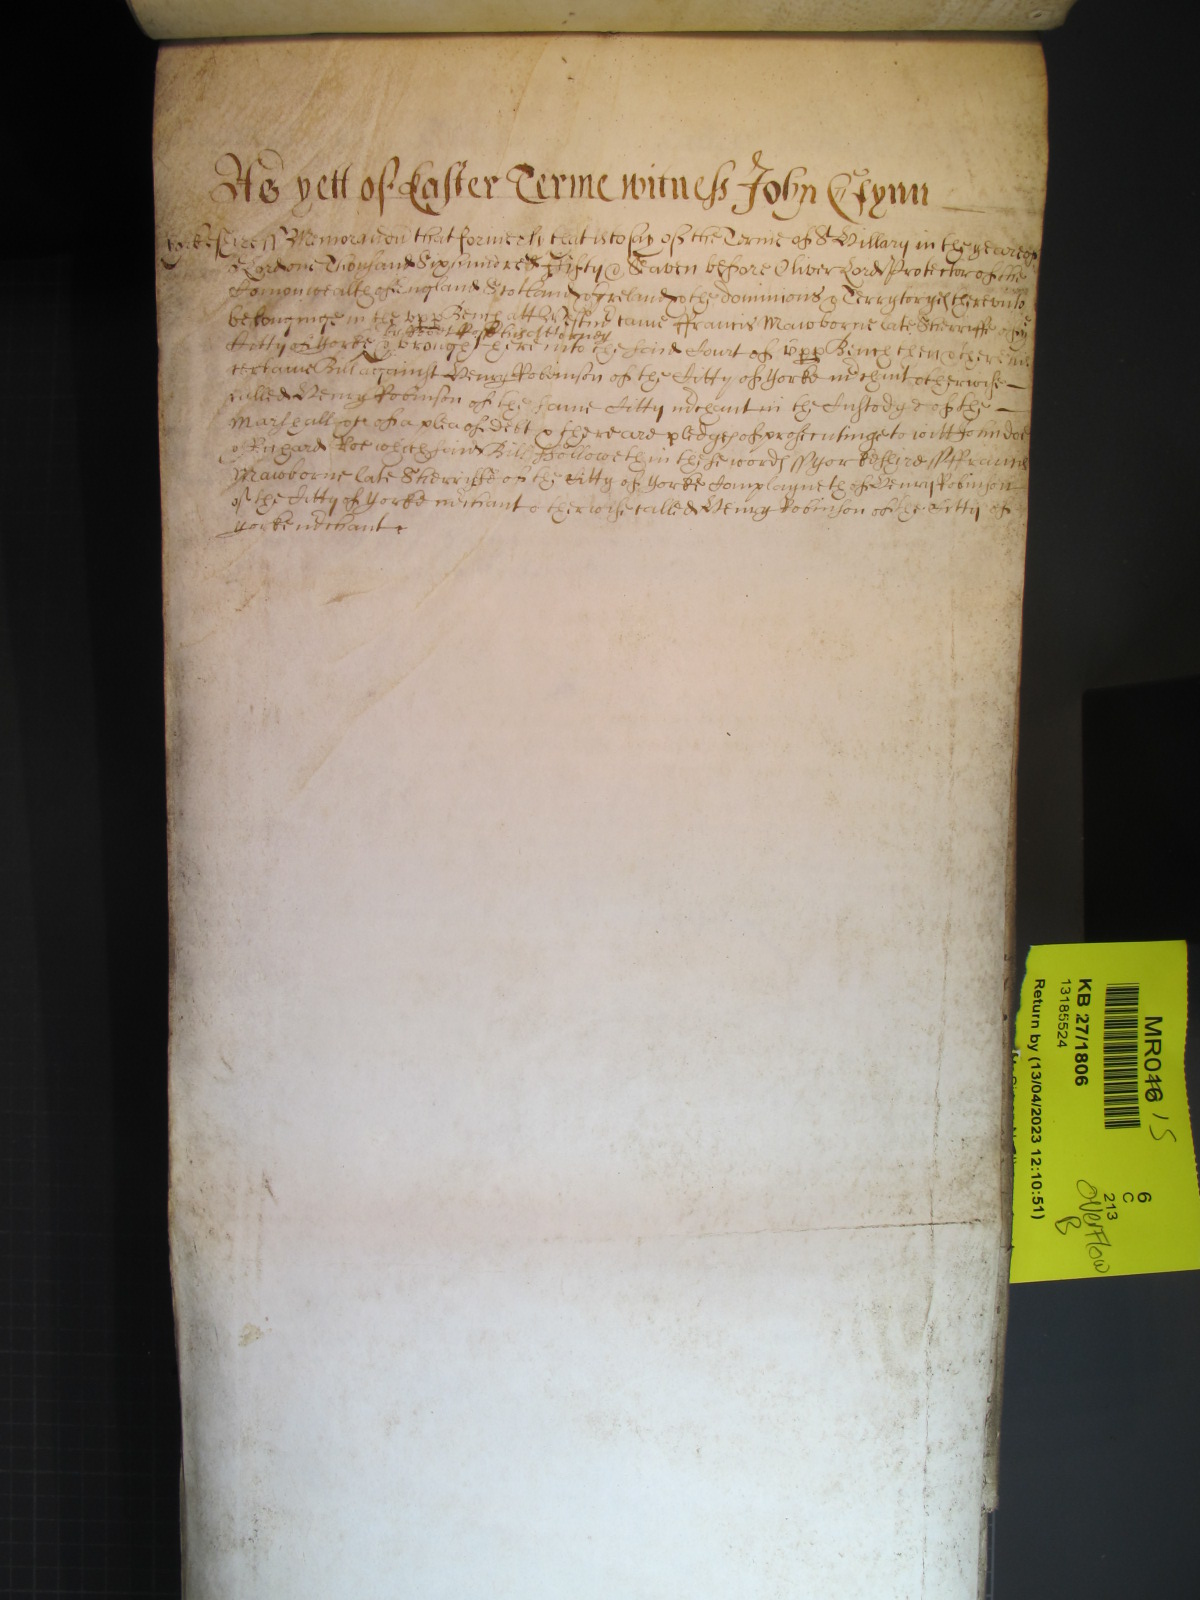 As yett of Easter Terme witness John Glynn
Yorkeshire ss Memorandu that formerly that is to say of the Terme of St Hillary in the yeare of
Lord one Thousand Six hundred Fifty & Seaven before Oliver Lord Protector of the
Comonwealth of England Scotland & Ireland & the dominions & Terrytoryes thereunto
belonginge in the upp Bench att Westmr came Ffrancis Mawborne late Sherriffe of the
by his Attorney
Citty of Yorke & brought here into the said Court of upp Bench then & there his
certaine Bill against Henry Robinson of the Citty of Yorke mchant otherwise
called Henry Robinson of the same Citty mchant in the Custody &c of the
Marshall &c of a plea of debt & there are pledges of prosecutinge to witt John doe
& Richard Roe which said Bill followeth in these words ss Yorkeshire ss Ffrancis
Mawborne late Sherriffe of the Citty of Yorke Complayneth of Henry Robinson
of the Citty of Yorke mchant otherwise called Henry Robinson of the Citty of
Yorke mchant
MR016 15
KB 27/1806
13185524
Return by (13/04/2023 12:10:51)
6
C
213
Overflow
B